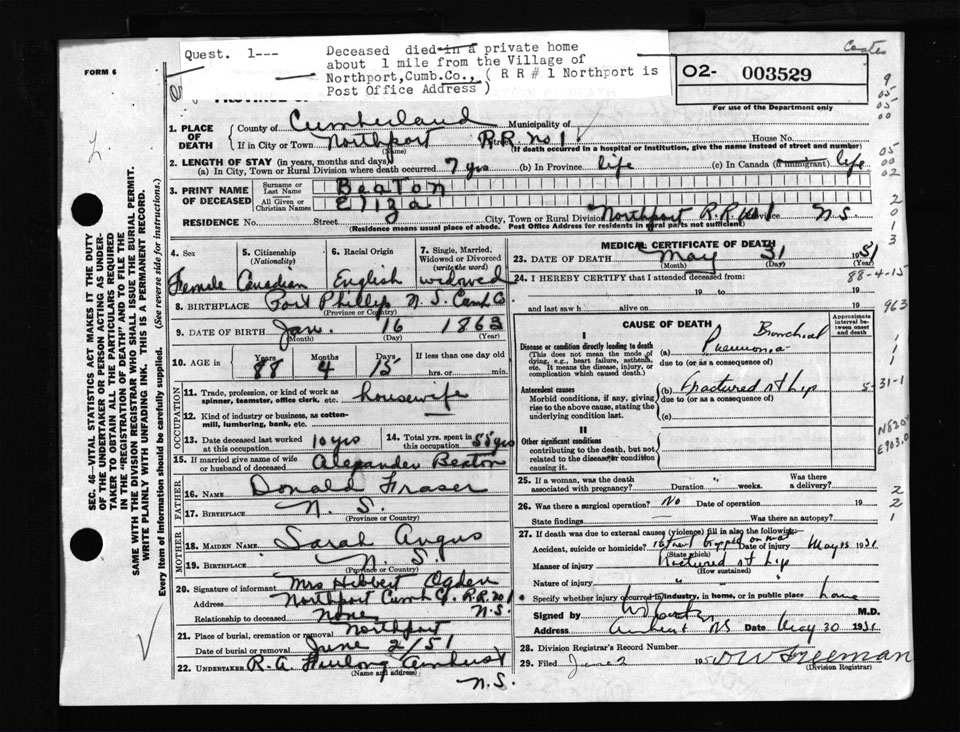 Coates
Quest. 1--- Deceased died in a private home
about 1 mile from the Village of
Northport,Cumb.Co., ( R R # 1 Northport is
Post Office Address )
FORM 6
PROVINCE OF
O2- 003529
For use of the Department only
1. PLACE OF DEATH
County of Cumberland Municipality of
If in City or Town Northport R.R. No 1. House No.
(Name) (If death occurred in a hospital or institution, give the name instead of street and number)
2. LENGTH OF STAY (in years, months and days)
(a) In City, Town or Rural Division where death occurred 7 yrs (b) In Province life (c) In Canada (if immigrant) life
3. PRINT NAME OF DECEASED
Surname or Last Name Beaton
All Given or Christian Names Eliza
RESIDENCE No. Street City, Town or Rural Division Northport R.R. No 1 Province N S
(Residence means usual place of abode. Post Office Address for residents in rural parts not sufficient)
4. Sex 5. Citizenship (Nationality) 6. Racial Origin 7. Single, Married, Widowed or Divorced (write the word)
Female Canadian English widowed
8. BIRTHPLACE Port Phillip N. S. Cumb Co
(Province or Country)
9. DATE OF BIRTH Jan. 16 1863
(Month) (Day) (Year)
10. AGE in Years Months Days If less than one day old
88 4 15 hrs. or min.
OCCUPATION
11. Trade, profession, or kind of work as spinner, teamster, office clerk, etc. housewife
12. Kind of industry or business, as cotton-mill, lumbering, bank, etc.
13. Date deceased last worked at this occupation 10 yrs 14. Total yrs. spent in this occupation 58 yrs
15. If married give name of wife or husband of deceased Alexander Beaton
FATHER
16. NAME Donald Fraser
17. BIRTHPLACE N. S.
(Province or Country)
MOTHER
18. MAIDEN NAME Sarah Angus
19. BIRTHPLACE N. S.
(Province or Country)
20. Signature of informant Mrs Hibbert Ogden
Address Northport Cumb Co. R.R. No 1 N.S.
Relationship to deceased None
21. Place of burial, cremation or removal Northport
Date of burial or removal June 2/51
22. UNDERTAKER R. A. Furlong Amherst
(Name and address)
N.S.
MEDICAL CERTIFICATE OF DEATH
23. DATE OF DEATH May 31 1951
(Month) (Day) (Year)
88-4-15
24. I HEREBY CERTIFY that I attended deceased from:
19 to 19
and last saw h alive on 19
963
CAUSE OF DEATH
Approximate interval between onset and death
I
Disease or condition directly leading to death (a) Bronchial Pneumonia
(This does not mean the mode of dying, e.g., heart failure, asthenia, etc. It means the disease, injury, or complication which caused death.)
due to (or as a consequence of)
Antecedent causes (b) Fractured rt hip
Morbid conditions, if any, giving rise to the above cause, stating the underlying condition last.
due to (or as a consequence of)
(c)
5-31-1
II
Other significant conditions
contributing to the death, but not related to the disease or condition causing it.
N820
E903.0
25. If a woman, was the death associated with pregnancy? Duration weeks. Was there a delivery?
26. Was there a surgical operation? No Date of operation 19
State findings Was there an autopsy?
27. If death was due to external causes (violence) fill in also the following:—
Accident, suicide or homicide? tripped on mat Date of injury May 1951
(State which)
Manner of injury Fractured rt hip
(How sustained)
Nature of injury " " "
Specify whether injury occurred in industry, in home, or in public place home
Signed by M.D.
Address Amherst NS Date May 30 1951
28. Division Registrar's Record Number
29. Filed June 2 195 D W Freeman
(Division Registrar)
SEC. 46—VITAL STATISTICS ACT MAKES IT THE DUTY
OF THE UNDERTAKER OR PERSON ACTING AS UNDER-
TAKER TO OBTAIN ALL THE PARTICULARS REQUIRED
IN THE "REGISTRATION OF DEATH" AND TO FILE THE
SAME WITH THE DIVISION REGISTRAR WHO SHALL ISSUE THE BURIAL PERMIT.
WRITE PLAINLY WITH UNFADING INK. THIS IS A PERMANENT RECORD.
Every item of Information should be carefully supplied. (See reverse side for instructions.)